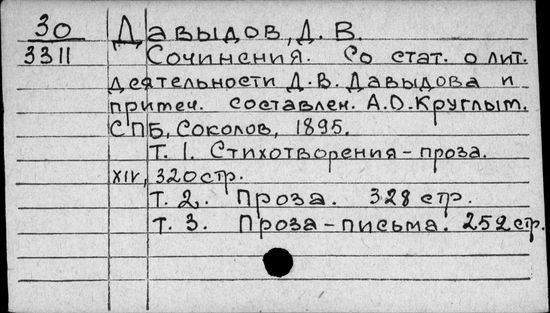 30 Давыдов, Д. В.
3311 Сочинения. Со стат. о лит.
деятельности Д. В. Давыдова и
примеч. составлен. А.О. Круглым.
СПБ, Соколов, 1895.
Т. 1. Стихотворения - проза.
XIV, 320 стр.
Т. 2. Проза. 328 стр.
Т. 3. Проза - письма. 252 стр.